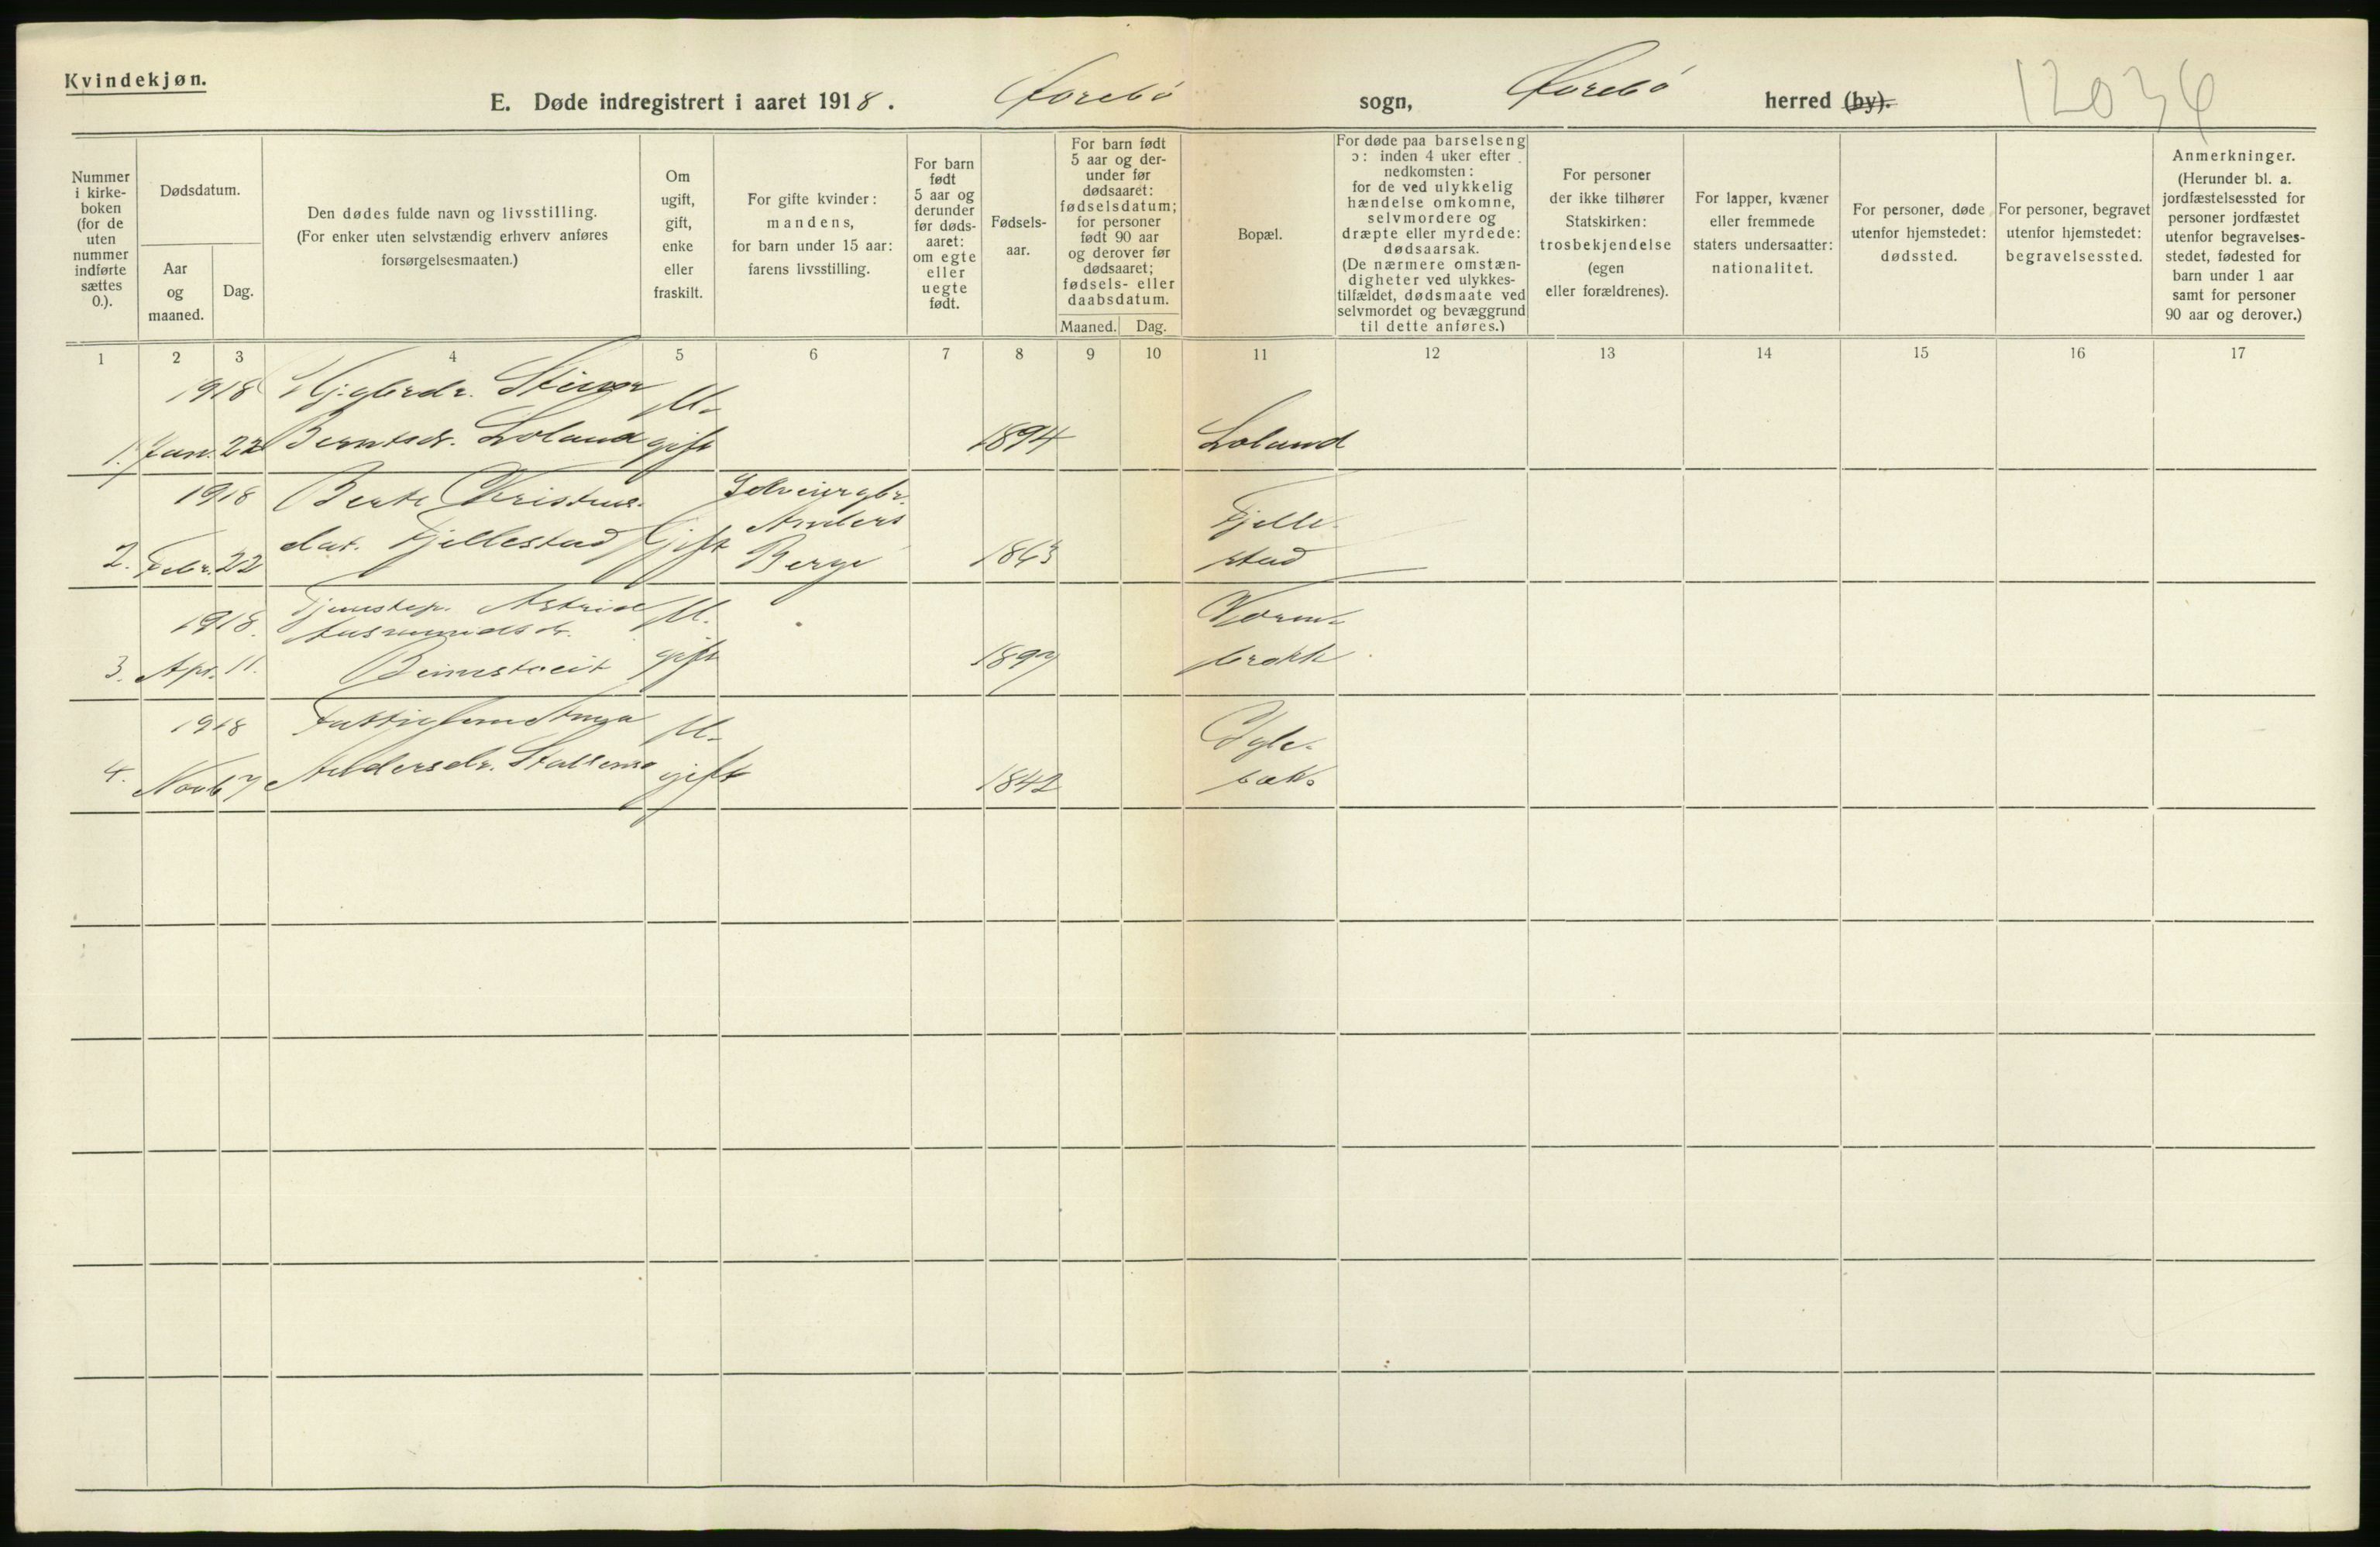 Kvindekjøn.
E. Døde indregistrert i aaret 1918. sogn, herred (by).
12036
Nummer
i kirke-
boken
(for de
uten
nummer
indførte
sættes
0.).
Dødsdatum.
Aar
og
maaned.
Dag.
Den dødes fulde navn og livsstilling.
(For enker uten selvstændig erhverv anføres
forsørgelsesmaaten.)
Om
ugift,
gift,
enke
eller
fraskilt.
For gifte kvinder:
mandens,
for barn under 15 aar:
farens livsstilling.
For barn
født
5 aar og
derunder
før døds-
aaret:
om egte
eller
uegte
født.
Fødsels-
aar.
For barn født
5 aar og der-
under før
dødsaaret:
fødselsdatum;
for personer
født 90 aar
og derover før
dødsaaret;
fødsels- eller
daabsdatum.
Maaned. Dag.
Bopæl.
For døde paa barselseng
ɔ: inden 4 uker efter
nedkomsten:
for de ved ulykkelig
hændelse omkomne,
selvmordere og
dræpte eller myrdede:
dødsaarsak.
(De nærmere omstæn-
digheter ved ulykkes-
tilfældet, dødsmaate ved
selvmordet og bevæggrund
til dette anføres.)
For personer
der ikke tilhører
Statskirken:
trosbekjendelse
(egen
eller forældrenes).
For lapper, kvæner
eller fremmede
staters undersaatter:
nationalitet.
For personer, døde
utenfor hjemstedet:
dødssted.
For personer, begravet
utenfor hjemstedet:
begravelsessted.
Anmerkninger.
(Herunder bl. a.
jordfæstelsessted for
personer jordfæstet
utenfor begravelses-
stedet, fødested for
barn under 1 aar
samt for personer
90 aar og derover.)
1 2 3 4 5 6 7 8 9 10 11 12 13 14 15 16 17
1918 U-
1. Jan. 22 Berntsdr. Loland gift 1894 Loland
1918 Berte
2. Febr. 22 dat. Fjellestad Gift Anders Berge 1863 Fjelle-
stad
1918. Astrid U-
3. Apr. 11. gift 1897
1918 U-
4. Novb 7 gift 1842